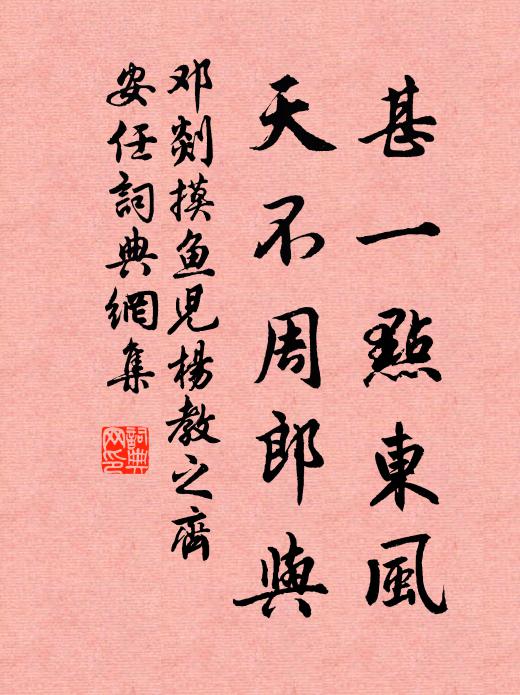 甚一點東風
天不周郎與
邓剡摸鱼児楊教之齊
安任詞典網集
詞典网印